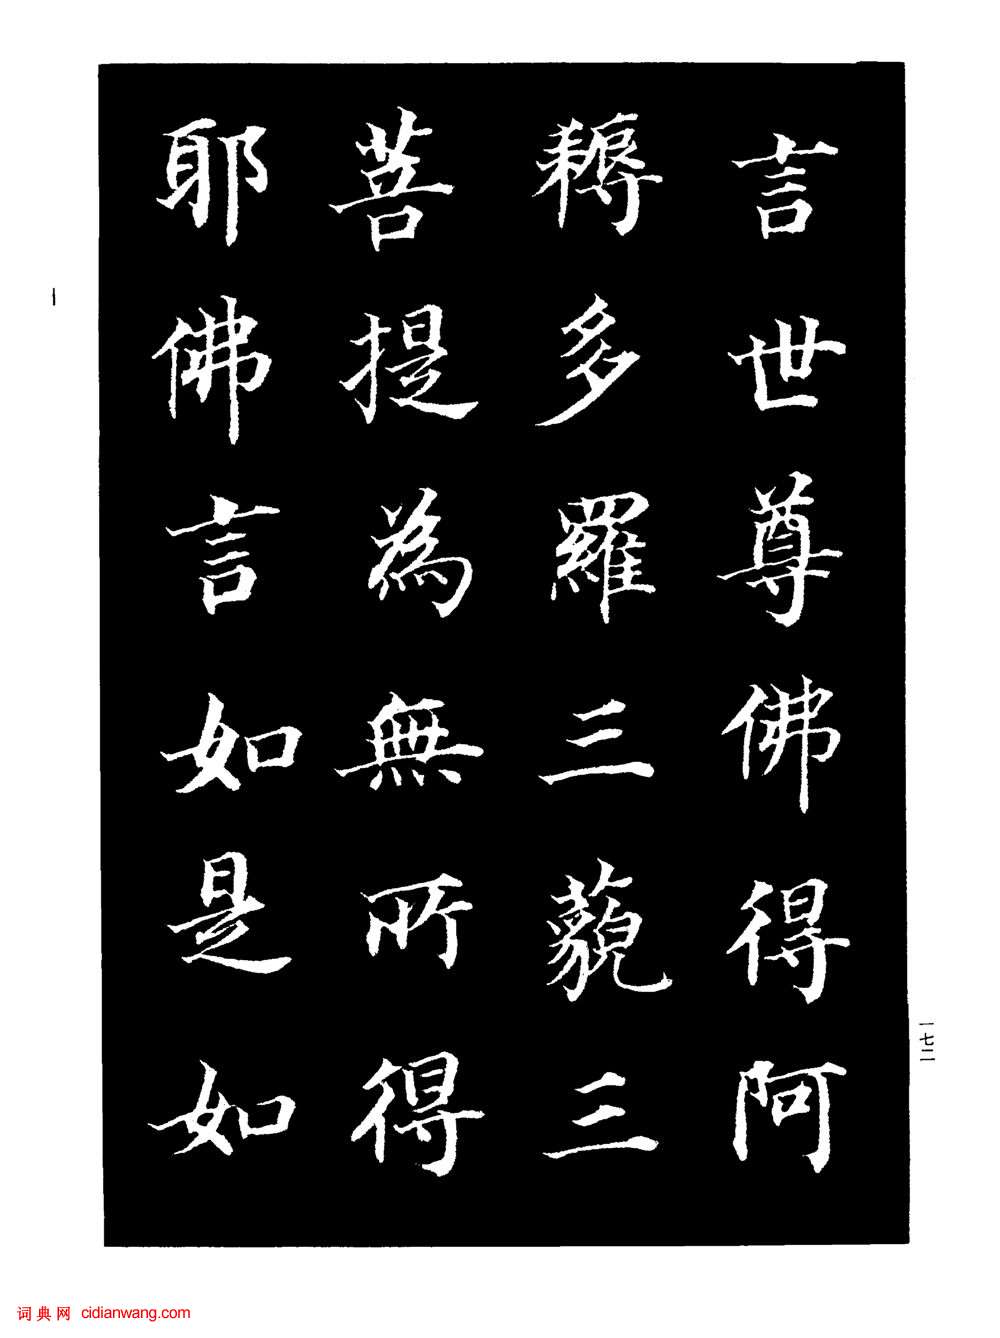 言世尊佛得阿
耨多羅三藐三
菩提為無所得
耶佛言如是如
一七二
词典网 cidianwang.com